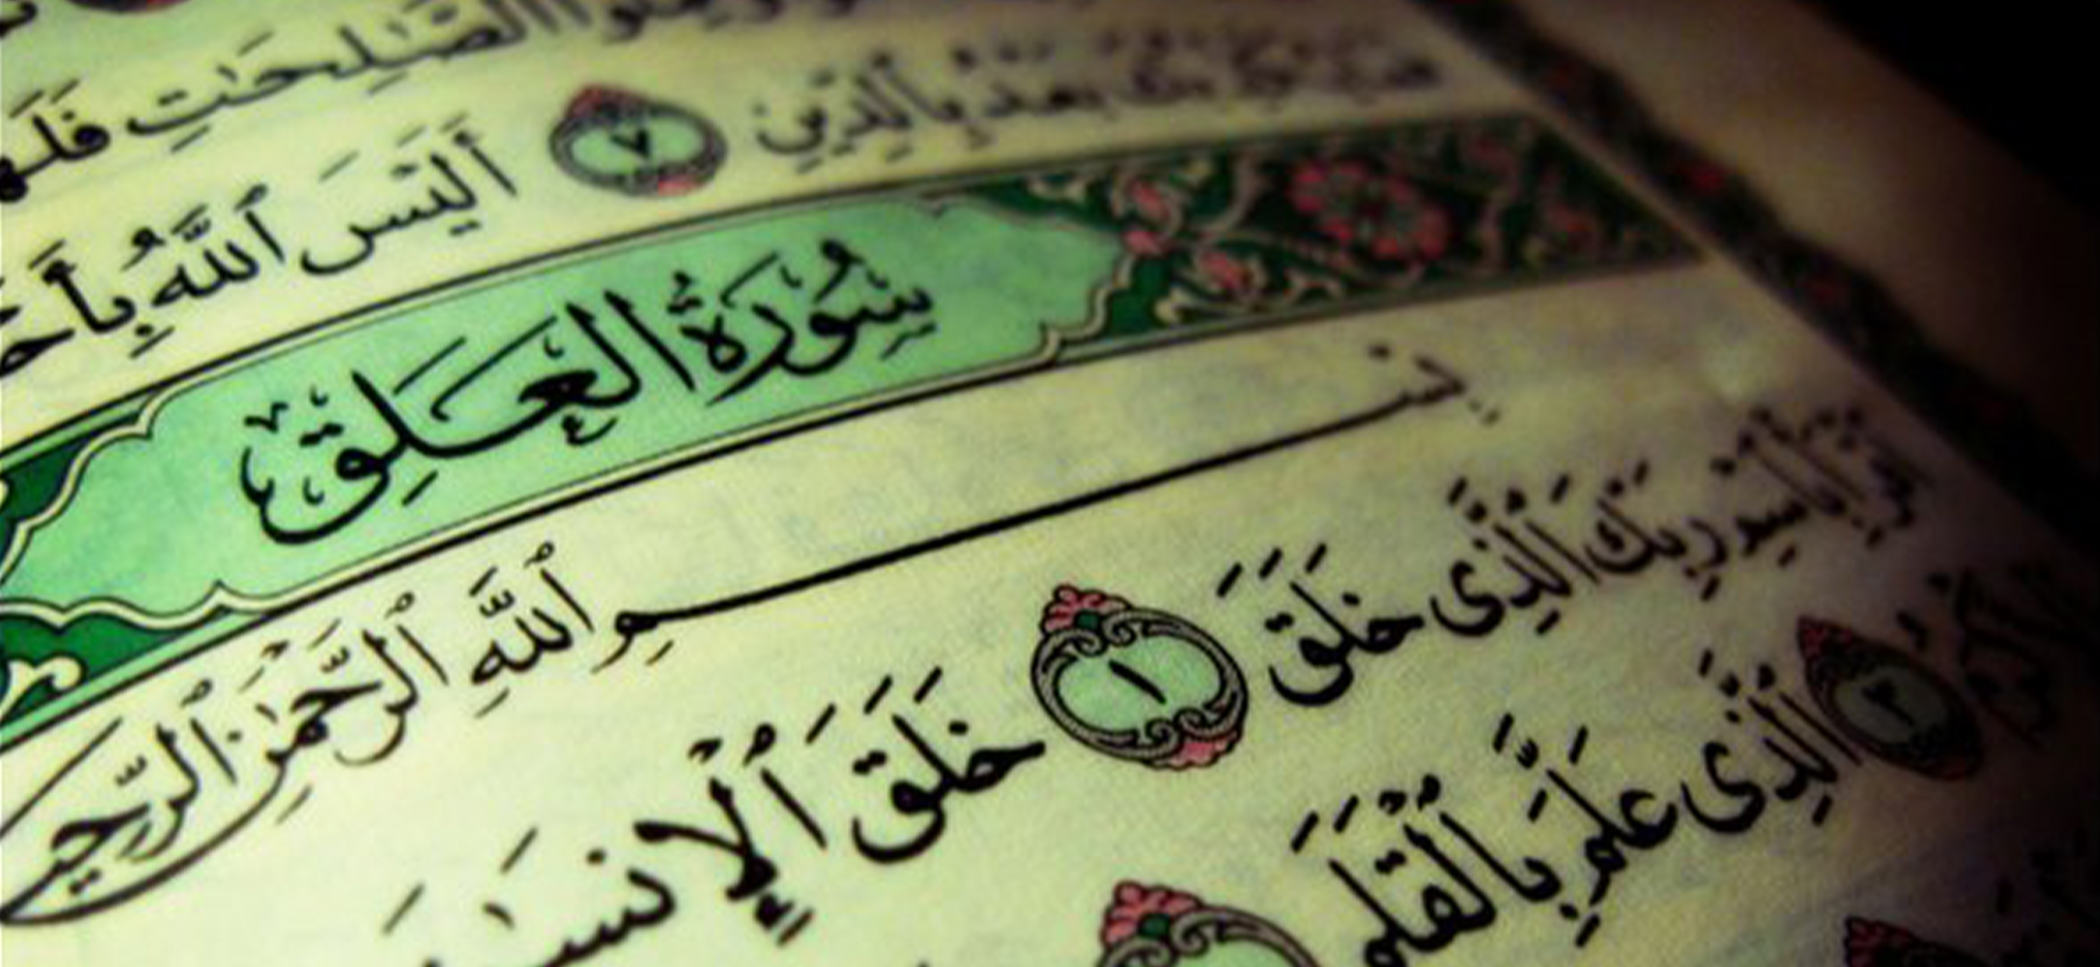 ٱلصَّـٰلِحَـٰتِ فَلَهُ
بَعْدُ بِٱلدِّينِ ٧ أَلَيْسَ ٱللَّهُ بِأَحْـ
سُورَةُ العَلَقِ
بِسْمِ ٱللَّهِ ٱلرَّحْمَـٰنِ ٱلرَّحِيـ
ٱقْرَأْ بِٱسْمِ رَبِّكَ ٱلَّذِى خَلَقَ ١ خَلَقَ ٱلْإِنسَـ
٣ ٱلَّذِى عَلَّمَ بِٱلْقَلَمِ